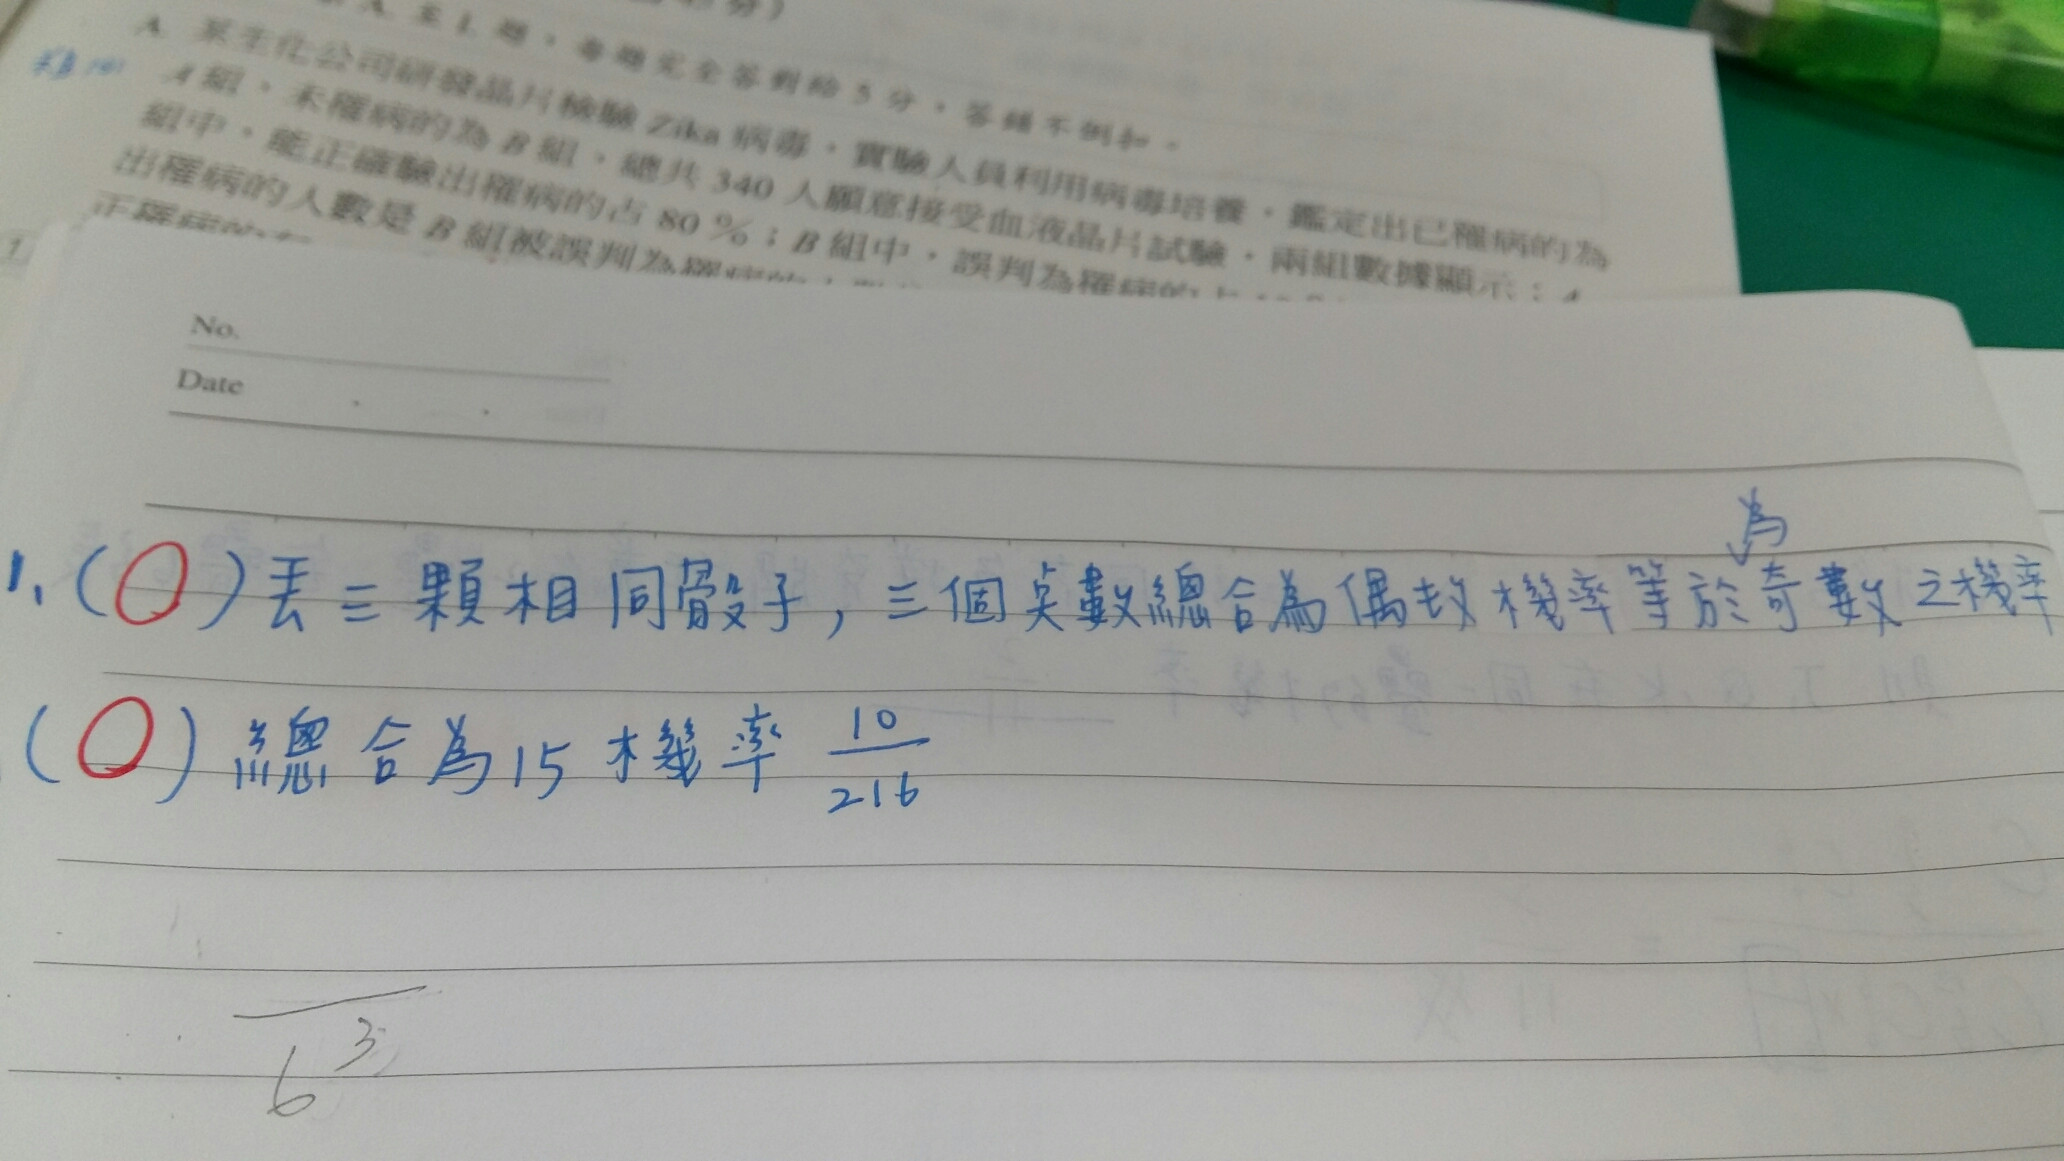 A 某生化公司研發晶片檢驗 Zika 病毒,實驗人員利用病毒培養,鑑定出已罹病的為
A 組,未罹病的為 B 組,總共 340 人願意接受血液晶片試驗,兩組數據顯示:A
組中,能正確驗出罹病的占 80 %;B 組中,誤判為罹病的
出罹病的人數是 B 組被誤判為罹病的
No.
Date
1. (O) 丟三顆相同骰子, 三個点數總合為偶數機率等於為奇數之機率
(O) 總合為15機率 10/216
6³